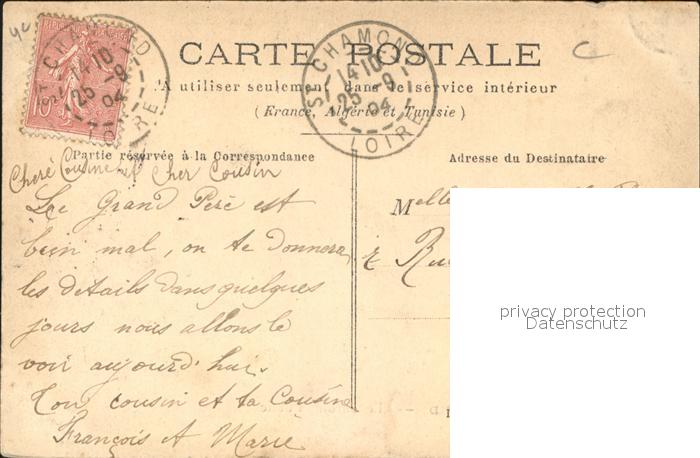 CARTE POSTALE
A utiliser seulement dans le service intérieur
(France, Algérie et Tunisie)
ST CHAMOND
14 10
25 -9
04
LOIRE
ST CHAMOND
14 10
25 -9
04
LOIRE
10
C
Partie réservée à la Correspondance
Adresse du Destinataire
Chère Cousine et Cher Cousin
Le Grand Père est
bien mal, on te donnera
les détails dans quelques
jours nous allons le
voir aujourd'hui.
Ton cousin et ta Cousine
François et Marie
Melle
2 Rue
privacy protection
Datenschutz